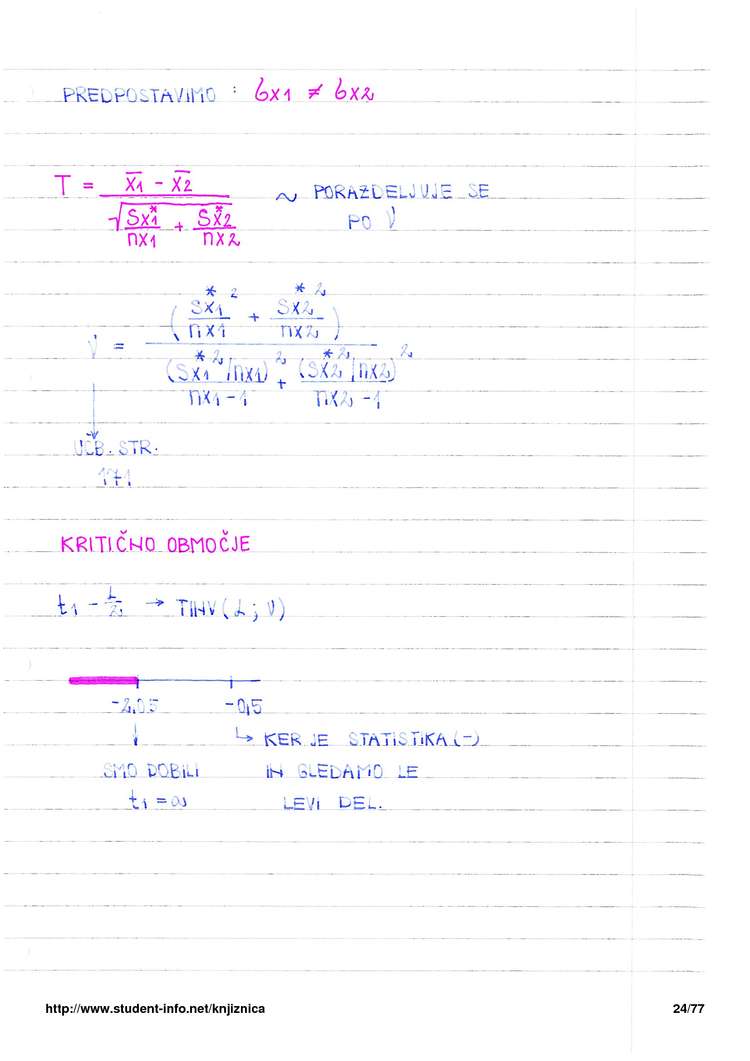 PREDPOSTAVIMO : 6x1 ≠ 6x2
T = (x̄1 - x̄2) / √(Sx1* / nx1 + Sx2* / nx2) ~ PORAZDELJUJE SE
PO V
V = (Sx1*² / nx1 + Sx2*² / nx2) / ((Sx1*² / nx1)² / (nx1 - 1) + (Sx2*² / nx2)² / (nx2 - 1))
UČB. STR.
171
KRITIČNO OBMOČJE
t1 - L/2 → TINV (L ; V)
-2,05 -0,5
↓ ↳ KER JE STATISTIKA (-)
SMO DOBILI IN GLEDAMO LE
t1 = LEVI DEL.
http://www.student-info.net/knjiznica 24/77